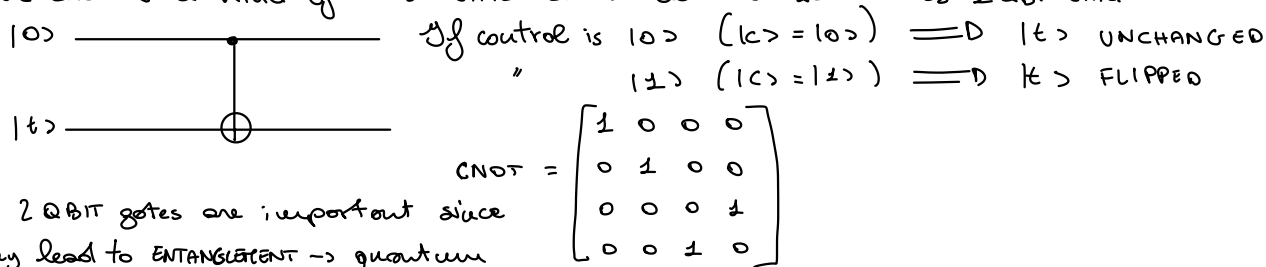 |0> If control is |0> (|c> = |0>) ==D |t> UNCHANGED
" |1> (|c> = |1>) ==D |t> FLIPPED
|t>
CNOT = [1 0 0 0
0 1 0 0
0 0 0 1
0 0 1 0]
2 QBIT gates are important since
lead to ENTANGLEMENT -> quantum